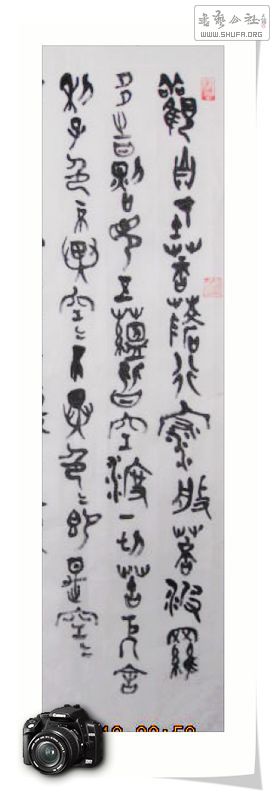 书艺公社
WWW.SHUFA.ORG
觀自在菩薩行深般若波羅
多時照見五蘊皆空度一切苦厄舍
利子色不異空〻不異色〻即是空〻
Canon